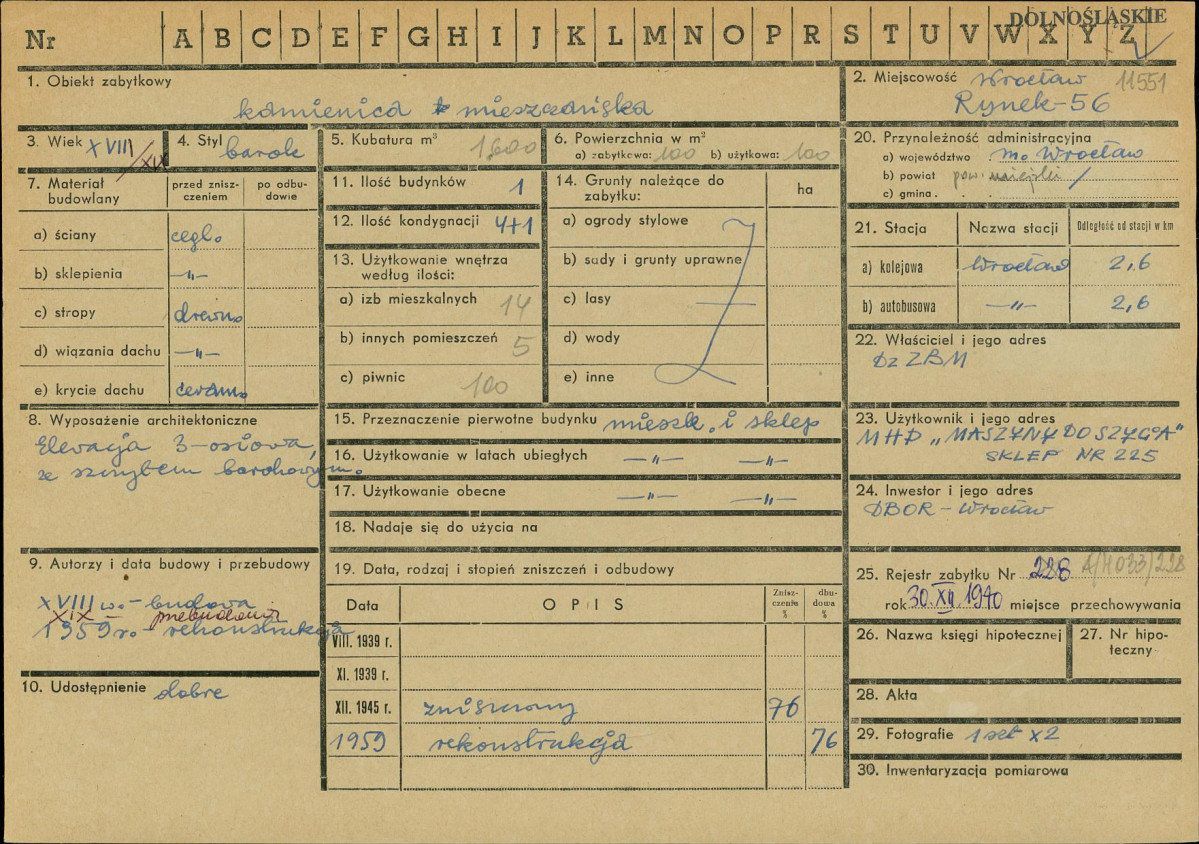 DOLNOŚLĄSKIE
Nr A B C D E F G H I J K L M N O P R S T U V W X Y Z
1. Obiekt zabytkowy
kamienica mieszczańska
2. Miejscowość Wrocław 11551
Rynek-56
3. Wiek XVIII/XIX
4. Styl barok
5. Kubatura m³ 1600
6. Powierzchnia w m²
a) zabytkowa: 100 b) użytkowa: 100
20. Przynależność administracyjna
a) województwo m. Wrocław
b) powiat pow. miejski
c) gmina
7. Materiał budowlany
przed zniszczeniem
po odbudowie
a) ściany cegł.
b) sklepienia —"—
c) stropy drewn.
d) wiązania dachu —"—
e) krycie dachu ceram.
11. Ilość budynków 1
12. Ilość kondygnacji 4+1
13. Użytkowanie wnętrza
według ilości:
a) izb mieszkalnych 14
b) innych pomieszczeń 5
c) piwnic 100
14. Grunty należące do
zabytku:
ha
a) ogrody stylowe
b) sady i grunty uprawne
c) lasy
d) wody
e) inne
21. Stacja Nazwa stacji Odległość od stacji w km
a) kolejowa Wrocław 2,6
b) autobusowa —"— 2,6
22. Właściciel i jego adres
DZ ZBM
8. Wyposażenie architektoniczne
Elewacja 3-osiowa,
ze szczytem barokowym.
15. Przeznaczenie pierwotne budynku mieszk. i sklep
16. Użytkowanie w latach ubiegłych —"— —"—
17. Użytkowanie obecne —"— —"—
18. Nadaje się do użycia na
23. Użytkownik i jego adres
MHD „MASZYNY DO SZYCIA"
SKLEP NR 225
24. Inwestor i jego adres
DBOR - Wrocław
9. Autorzy i data budowy i przebudowy
XVIII w. - budowa
XIX - przebudowa
1959 r. - rekonstrukcja
10. Udostępnienie dobre
19. Data, rodzaj i stopień zniszczeń i odbudowy
Data OPIS Zniszczenie % dbudoma %
VIII. 1939 r.
XI. 1939 r.
XII. 1945 r. zniszczony 76
1959 rekonstrukcja 76
25. Rejestr zabytku Nr 228 A/4033/228
rok 30.XII.1970 miejsce przechowywania
26. Nazwa księgi hipotecznej
27. Nr hipoteczny
28. Akta
29. Fotografie 1 szt x2
30. Inwentaryzacja pomiarowa